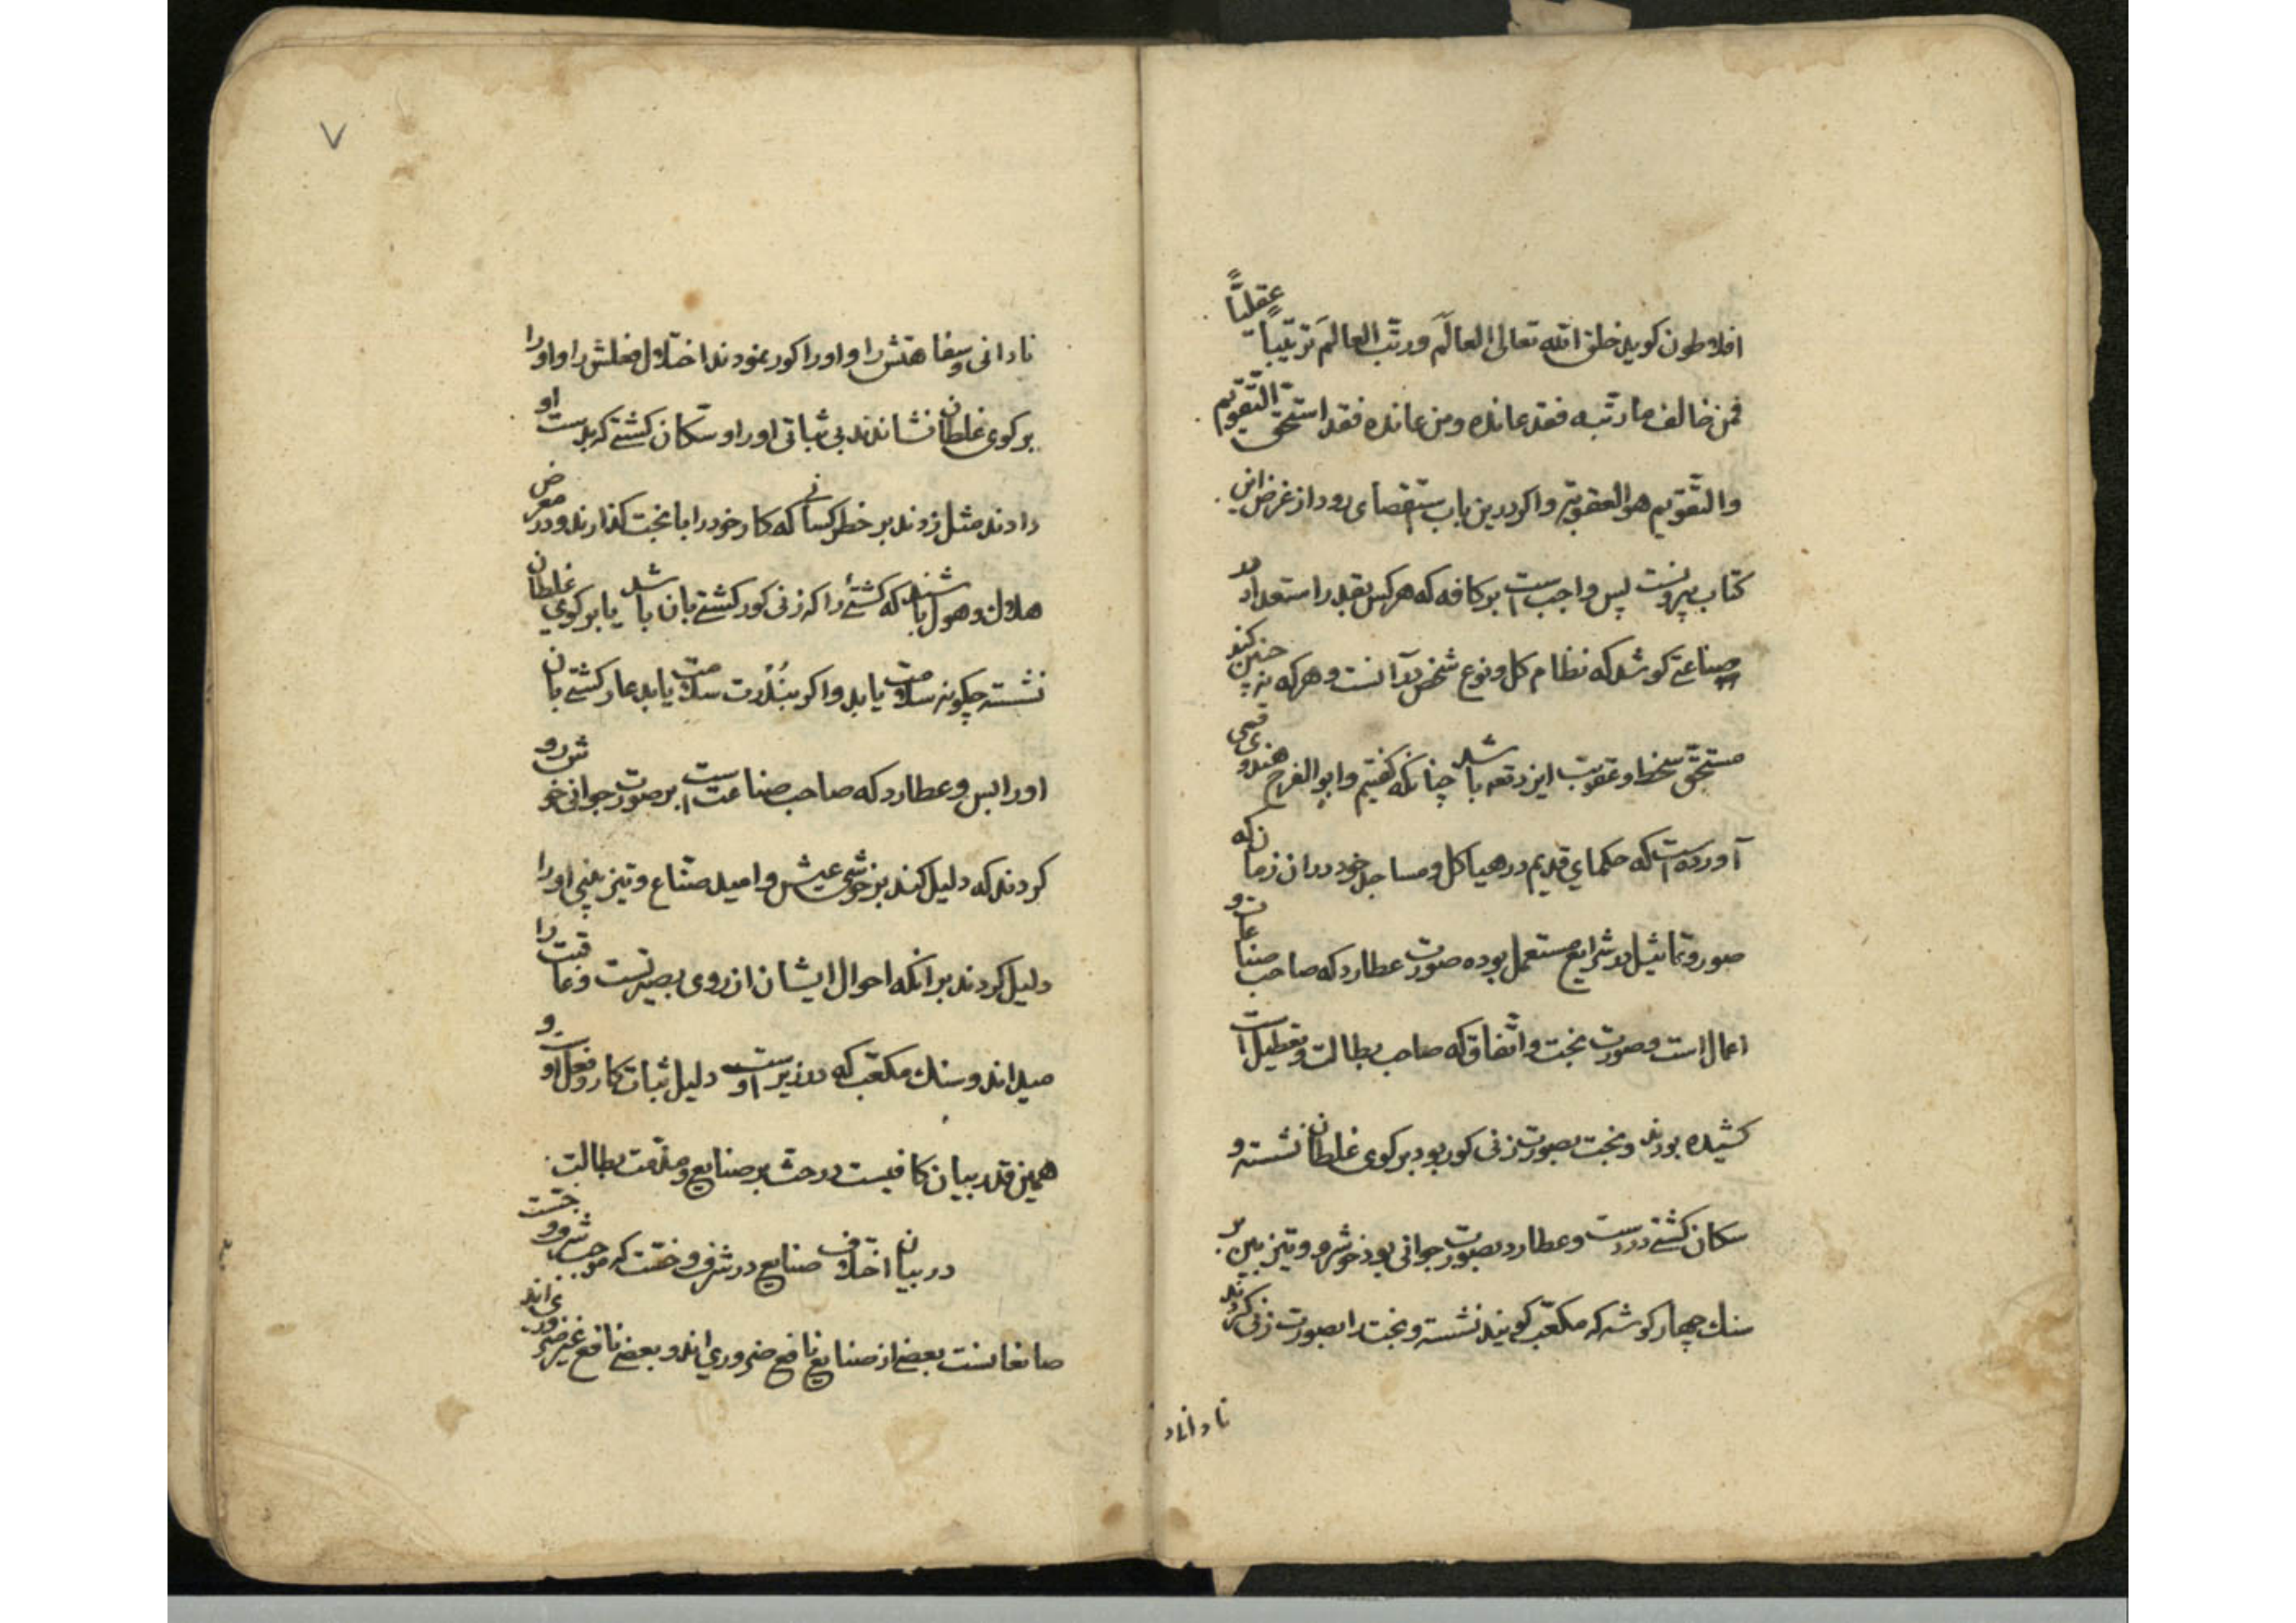 افلاطون کوید خلق الله تعالی العالَم ورتّب العالَم ترتیباً عقلیّاً
فمن خالف ما رتّبه فقد عانده ومن عانده فقد استحقّ التّقویم
والتّقویم هو العقوبة واکر درین باب استقصای رود از غرض این
کتاب بیرونست پس واجب است بر کافه که هرکس بقدر استعداد در
صناعتی کوشد که نظام کل ونوع شخص بدآنست وهرکه نه چنین کند
مستحقّ سخط وعقوبت این دقعه باشد چنانکه کفتیم وابو الفرج هندوی قمی
آورده است که حکمای قدیم در هیاکل ومساجد خود دران زمان که
صور وتماثیل در شرایع مستعمل بوده صورت عطارد که صاحب صناعات و
اعمال است وصورت بخت واتّفاق که صاحب بطالت وتعطیل است
کشیده بودند وبخت بصورت زنی کور بود برکوی غلطان نشسته و
سکان کشتی در دست وعطارد بصورت جوانی بود خوشرو وتیزبین بر
سنك چهارکوشه که مکعّب کویند نشسته وبخت را بصورت زنی کردند
نادانی وسفاهتش را واورا کور نمودند اختلال فعلش را واورا
برکوی غلطان نشاندند بی ثباتی اورا وسکان کشتی که بدست او
دادند مثل زدند بر خطر کسانی که کار خود را با بخت کذارند ودر معرض
هلاك وهول باشند که کشتیٔ را که زنی کور کشتی بان باشد یا برکوی غلطان
نشسته چکونه سلامت یابد واکر بنُدْرت سلامت یابد عار کشتی بان
اورا بس وعطارد که صاحب صناعت است بر صورت جوانی خوش رو
کردند که دلیل کند بر خوشی عیش وامید صنّاع وتیزبینی اورا
دلیل کردند برانکه احوال ایشان از روی بصیرتست وعاقبت را
میدانند وسنك مکعّب که در زیر اوست دلیل ثبات کار وفعل او و
همین قدر بیان کافیست در حث بر صنایع ومذمّت بطالت
در بیان اختلاف صنایع در شرف وخسّت که موجب شرف وخسّت
صانعانست بعضی از صنایع نافع ضروری اند وبعضی نافع غیر ضروری اند